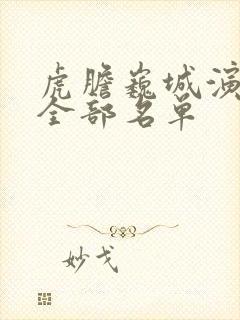 虎胆巍城演
全部名单
妙戈